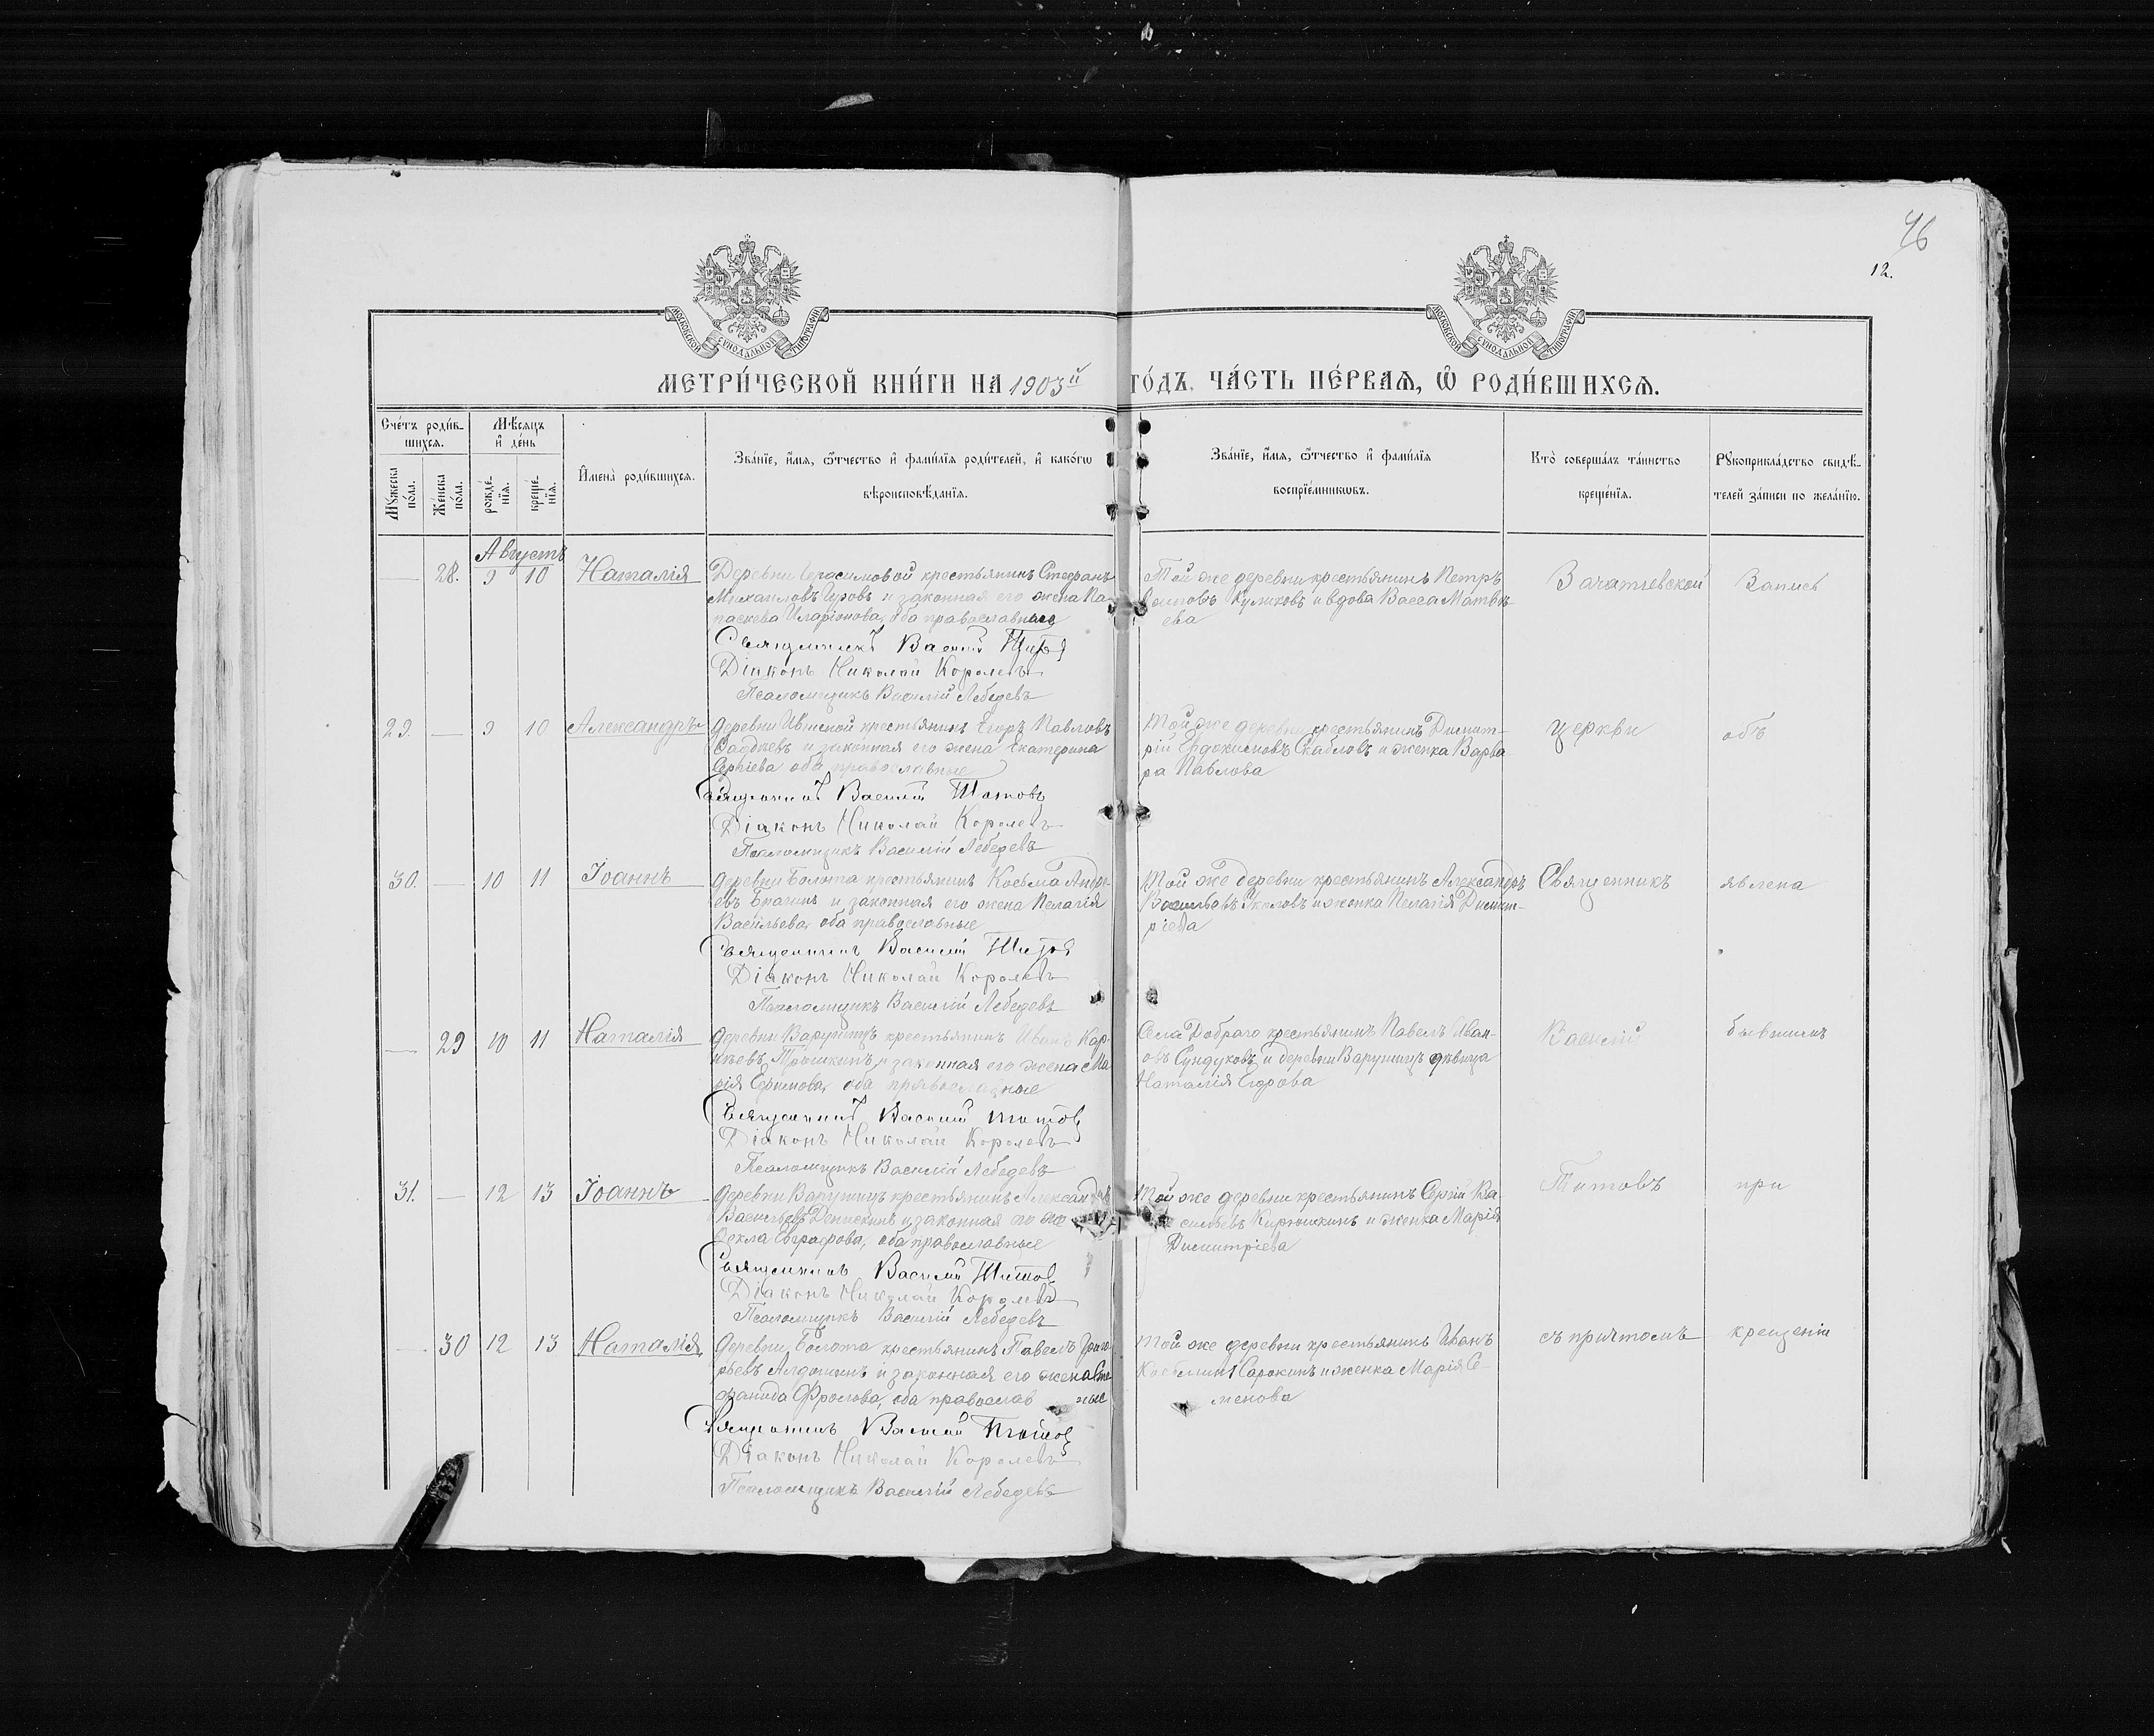 46
12.
МОСКОВСКОЙ СѴНОДАЛЬНОЙ ТИПОГРАФІИ
МОСКОВСКОЙ СѴНОДАЛЬНОЙ ТИПОГРАФІИ
МЕТРИ́ЧЕСКОЙ КНИ́ГИ НА 1903й ГО́ДЪ, ЧА́СТЬ ПЕ́РВАѦ, Ѡ҆ РОДИ́ВШИХСѦ.
Сче́тъ роди́в-
шихсѧ.
Мꙋ́жеска
по́ла.
Же́нска
по́ла.
Мѣ́сѧцъ
и҆ де́нь
рожде́-
нїѧ.
креще́-
нїѧ.
И҆мена̀ роди́вшихсѧ.
Зва́нїе, и҆́мѧ, ѻ҆́тчество и҆ фами́лїѧ роди́телей, и҆ како́гѡ
вѣроисповѣ́данїѧ.
Зва́нїе, и҆́мѧ, ѻ҆́тчество и҆ фами́лїѧ
воспрїе́мникѡвъ.
Кто̀ соверша́лъ та́инство
креще́нїѧ.
Рꙋкоприкла́дство свидѣ́-
телей за́писи по жела́нїю.
Августъ
— 28. 9 10 Наталія
Деревни Герасимовой крестьянинъ Стефанъ
Михаиловъ и законная его жена Па-
раскева Иларіонова, оба православные
Священникъ Василій Титовъ
Діаконъ Николай Королевъ
Псаломщикъ Василій Лебедевъ
Той же деревни крестьянинъ Петръ
Куликовъ и вдова Васса Матвѣ-
ева
Зачатіевской
Запись
29. — 9 10 Александръ
Деревни крестьянинъ Егоръ Павловъ
и законная его жена Екатерина
Сергіева оба православные
Священникъ Василій Титовъ
Діаконъ Николай Королевъ
Псаломщикъ Василій Лебедевъ
Той же деревни крестьянинъ Димит-
рій Евдокимовъ и женка Варва-
ра Павлова
церкви
объ
30. — 10 11 Іоаннъ
Деревни Болота крестьянинъ Косьма Андре-
евъ и законная его жена Пелагія
Васильева, оба православные
Священникъ Василій Титовъ
Діаконъ Николай Королевъ
Псаломщикъ Василій Лебедевъ
Той же деревни крестьянинъ Александръ
Васильевъ и женка Пелагія Димит-
ріева
Священникъ
явлена
— 29 10 11 Наталія
Деревни Варушицъ крестьянинъ Иванъ
Тришкинъ и законная его жена Ма-
рія Ефимова, оба православные
Священникъ Василій Титовъ
Діаконъ Николай Королевъ
Псаломщикъ Василій Лебедевъ
Села Добраго крестьянинъ Павелъ Иван-
овъ Сундуковъ и деревни Варушицъ дѣвица
Наталія Егорова
Василій
бывшимъ
31. — 12 13 Іоаннъ
Деревни Варушицъ крестьянинъ Александръ
Васильевъ Денискинъ и законная его же
Фекла Евграфова, оба православные
Священникъ Василій Титовъ
Діаконъ Николай Королевъ
Псаломщикъ Василій Лебедевъ
Той же деревни крестьянинъ Сергій Ва-
сильевъ Кирюшкинъ и женка Марія
Димитріева
Титовъ
при
— 30 12 13 Наталія
Деревни Болота крестьянинъ Павелъ Григо-
рьевъ Алдошинъ и законная его жена Сте-
фанида Фролова, оба православные
Священникъ Василій Титовъ
Діаконъ Николай Королевъ
Псаломщикъ Василій Лебедевъ
Той же деревни крестьянинъ Иванъ
Косьминъ Сорокинъ и женка Марія Се-
менова
съ причтомъ
крещеніи